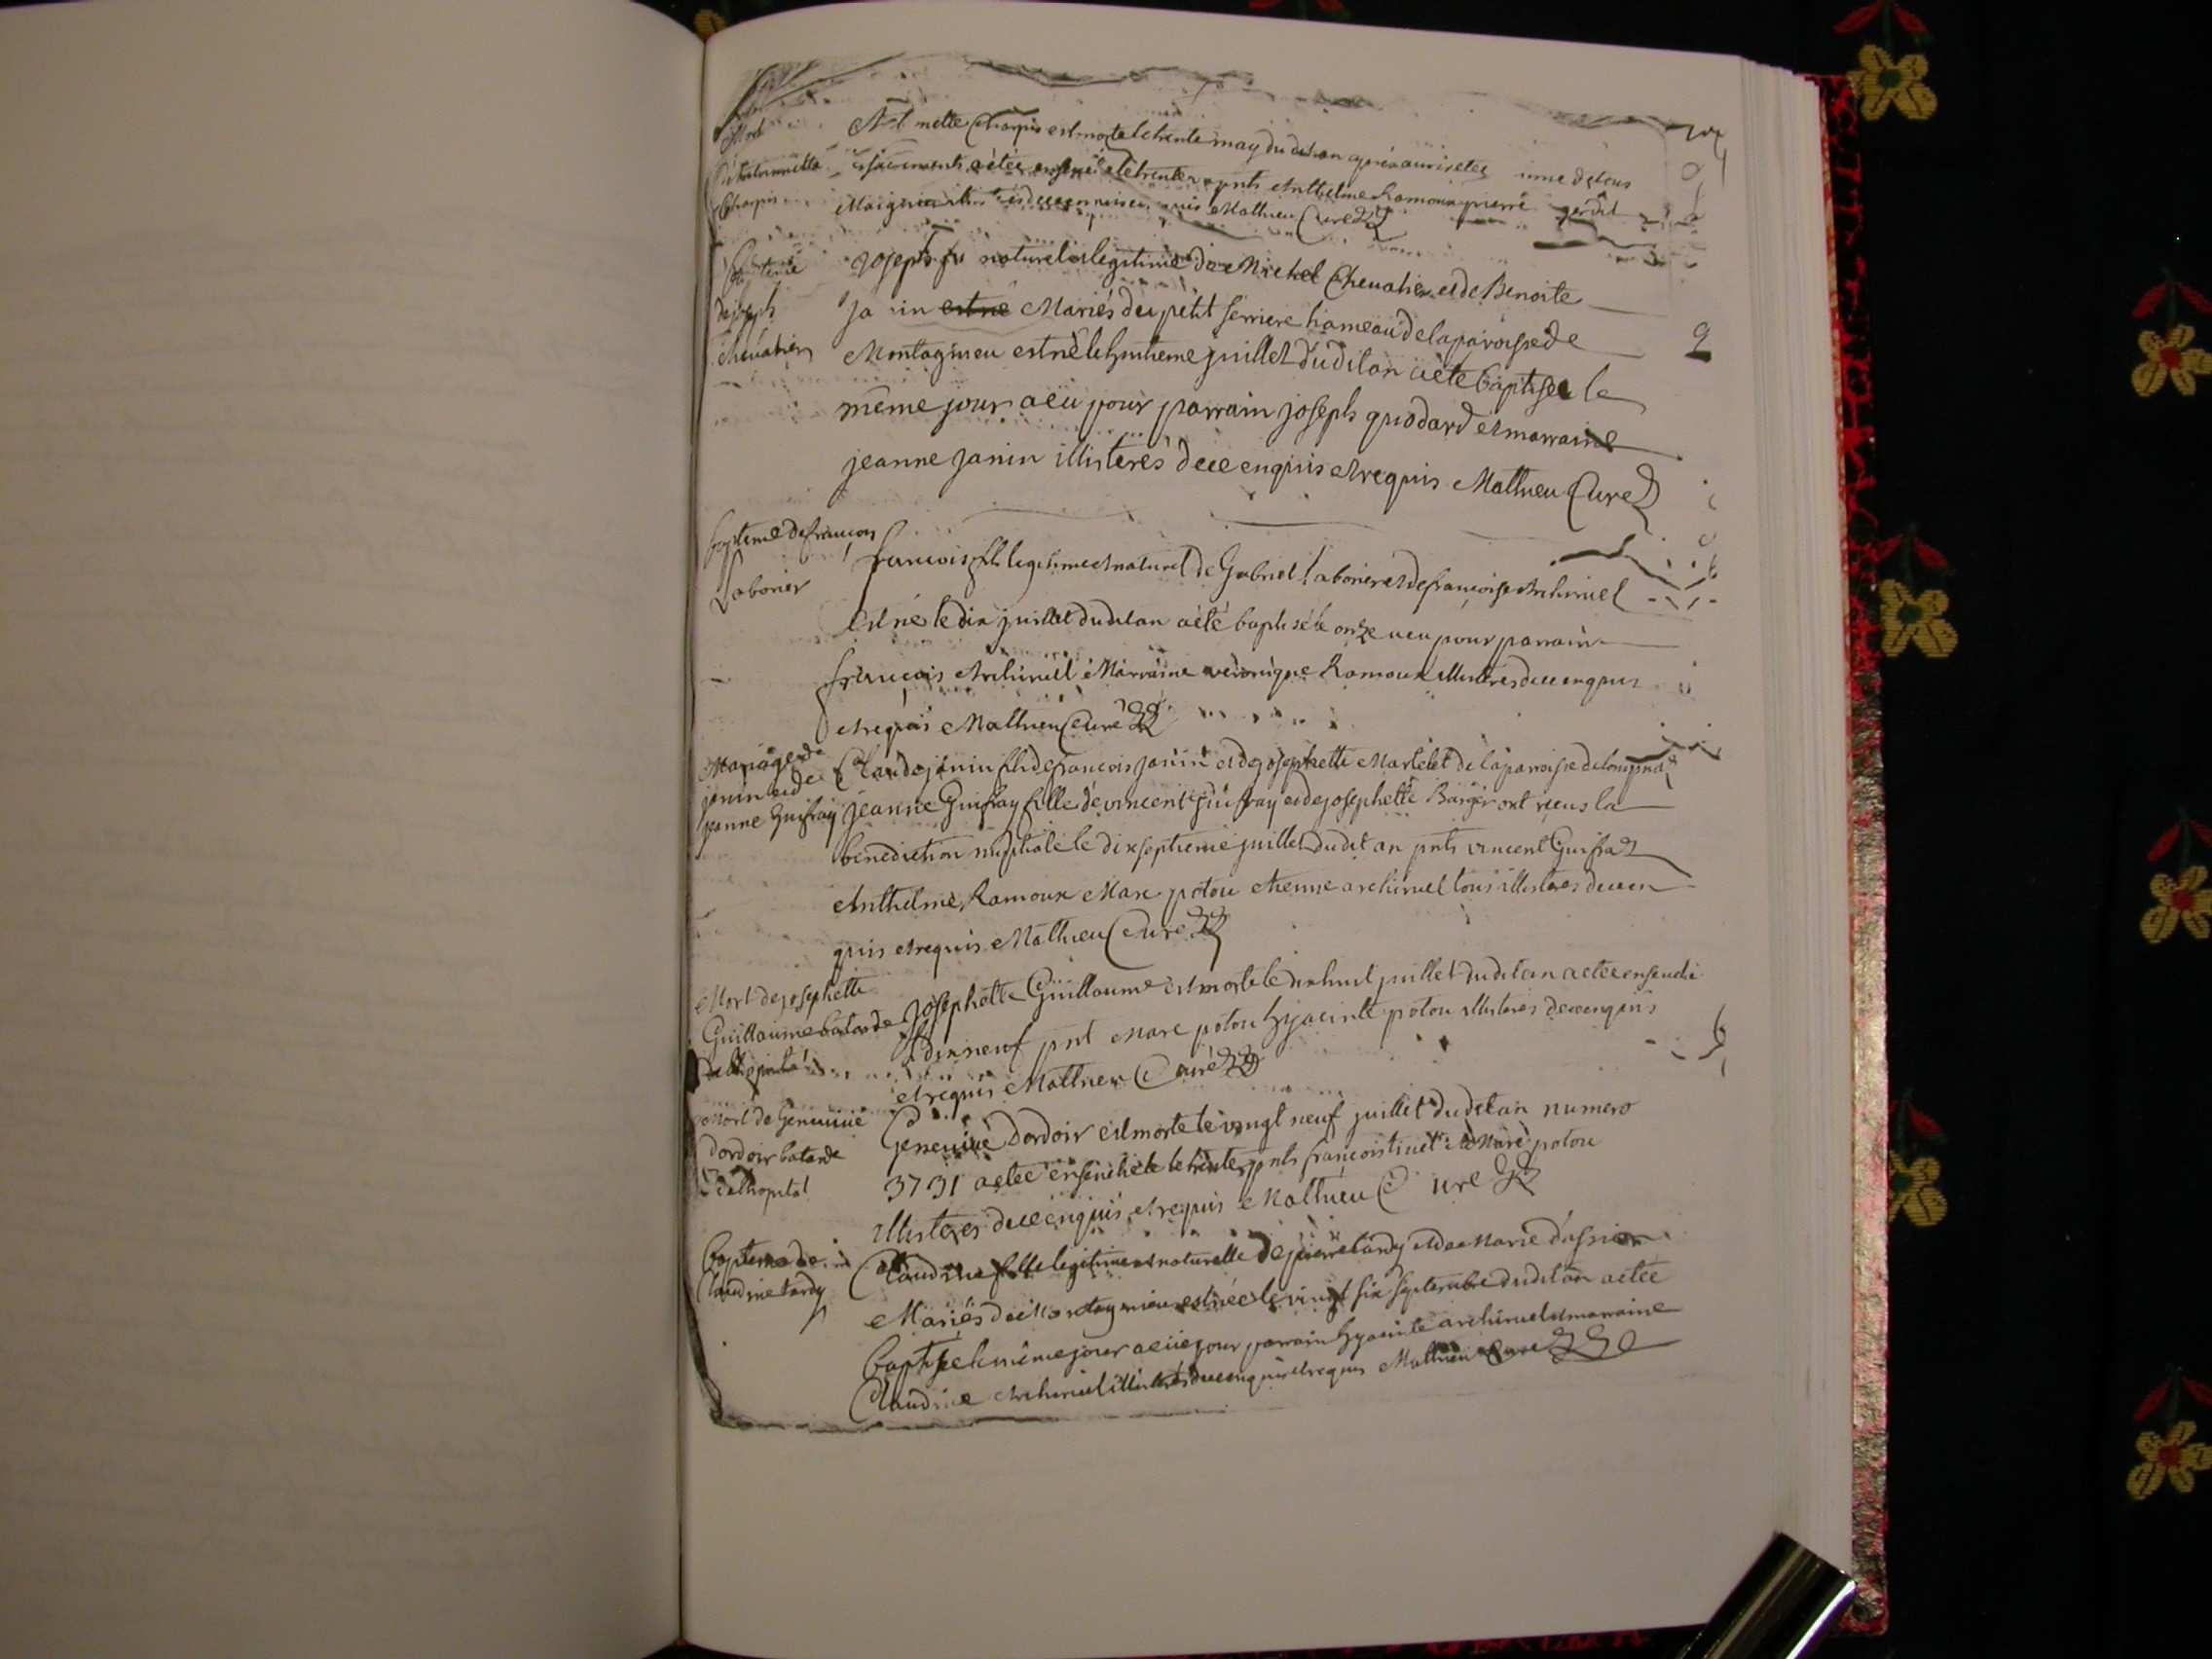 Mort
Charpin
mette Charpin est morte le trente may du dit an après avoir etée
sacrements a etée le trente pnts Anthelme Ramoux pierre
Mathieu Curé
de joseph
chevalier
joseph naturel et legitime de Michel Chevalier et de Benoite
Ja nin est né Mariés du petit serriere hameau de la paroisse de
Montagnieu est né le huitieme juillet du dit an a èté baptisé le
même jour a eu pour parrain joseph quodard et marraine
jeanne janin illisterés de ce enquis et requis Mathieu Curé
2
baptême de françois
Laborier
francois fils legitime et naturel de Gabriel Laborier et de françoise Archiruel
est né le dix juillet du dit an a èté baptisé le onze a eu pour parrain
françois Archiruel Marraine veronique Ramoux illisterés de ce enquis
et requis Mathieu Curé
Mariage de
janin et de
jeanne Guifray
Claude janin fils de francois janin et de josephette Martelet de la paroisse de
jeanne Guifray fille de vincent Guifray et de josephette Barger ont reçus la
benediction nuptiale le dixseptieme juillet du dit an pnts vincent
Anthelme Ramoux Marc potou etienne archiruel tous illisteres de ce en
quis et requis Mathieu Curé
Mort de josephette
Guillaume batarde
josephette Guillaume est morte le dixhuit juillet du dit an a etée enseveli
dixneuf pnt Marc potou hyacinte potou illisteres de ce enquis
et requis Mathieu Curé
Mort de Genevieve
Dordoir batarde
de l'hopital
Genevieve Dordoir est morte le vingt neuf juillet du dit an numero
3731 a etée ensevelie le trente pnts françois Marc potou
illisteres de ce enquis et requis Mathieu Curé
Baptême de
Claudine tardy
Claudine fille legitime et naturelle de pierre tardy et de Marie
Mariés de Montagnieu est née le vingt six septembre du dit an a etée
baptisée le même jour a eu pour parrain hyacinte archiruel et marraine
Claudine Archiruel illisterés de ce enquis et requis Mathieu Curé